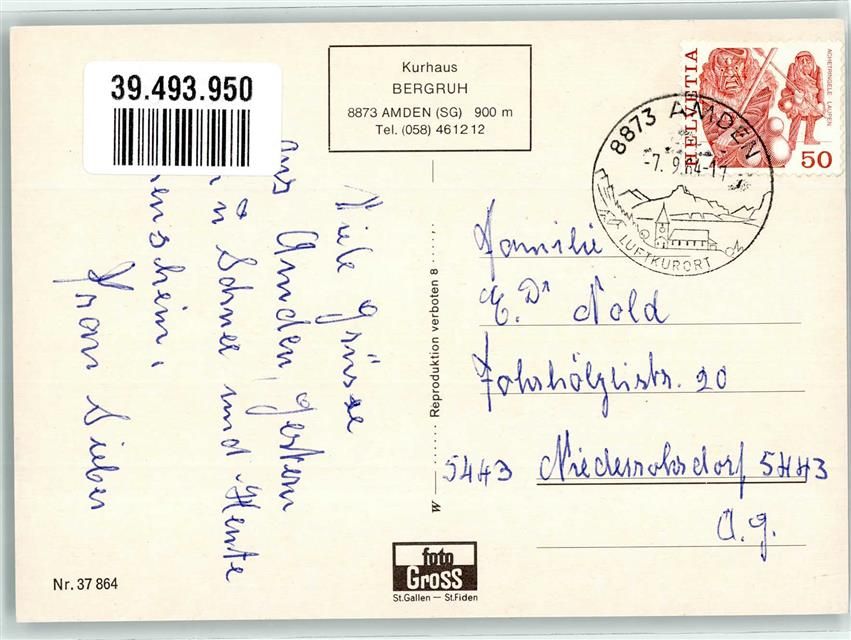 39.493.950
Kurhaus
BERGRUH
8873 AMDEN (SG) 900 m
Tel. (058) 461212
HELVETIA
ACHETRINGELE · LAUPEN
50
8873 AMDEN
-7. 9.84-11
LUFTKURORT
Viele Grüsse
aus Amden, gestern
Schnee und Heute
enschein.
Frau Sieber
W
Reproduktion verboten 8
Familie
E. Dr Nold
Fohrhölzlistr. 20
5443 Niederrohrdorf 5443
A.g.
Nr. 37 864
foto
Gross
St.Gallen — St.Fiden